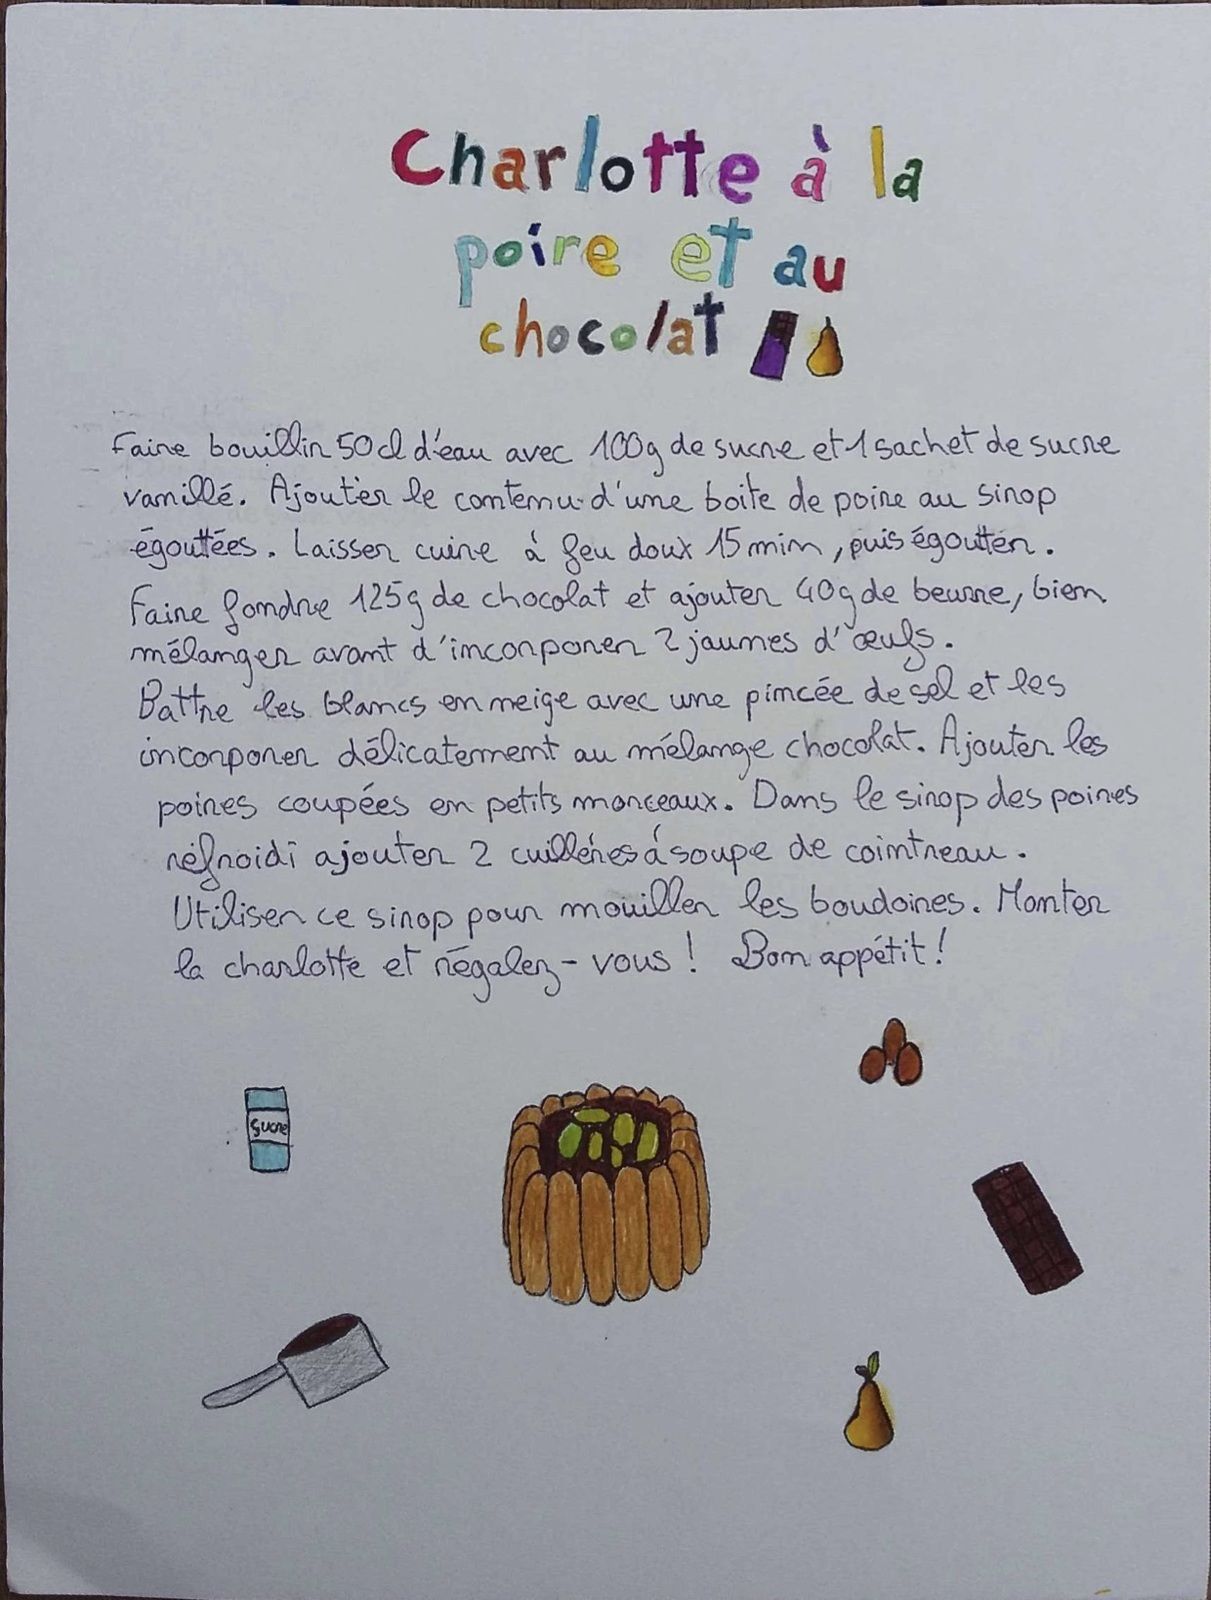 Charlotte à la
poire et au
chocolat
Faire bouillir 50cl d'eau avec 100g de sucre et 1 sachet de sucre
vanillé. Ajouter le contenu d'une boite de poire au sirop
égouttées. Laisser cuire à feu doux 15 min, puis égoutter.
Faire fondre 125g de chocolat et ajouter 40g de beurre, bien
mélanger avant d'incorporer 2 jaunes d'œufs.
Battre les blancs en neige avec une pincée de sel et les
incorporer délicatement au mélange chocolat. Ajouter les
poires coupées en petits morceaux. Dans le sirop des poires
réfroidi ajouter 2 cuillères à soupe de cointreau.
Utiliser ce sirop pour mouiller les boudoires. Monter
la charlotte et régalez-vous ! Bon appétit !
Sucre